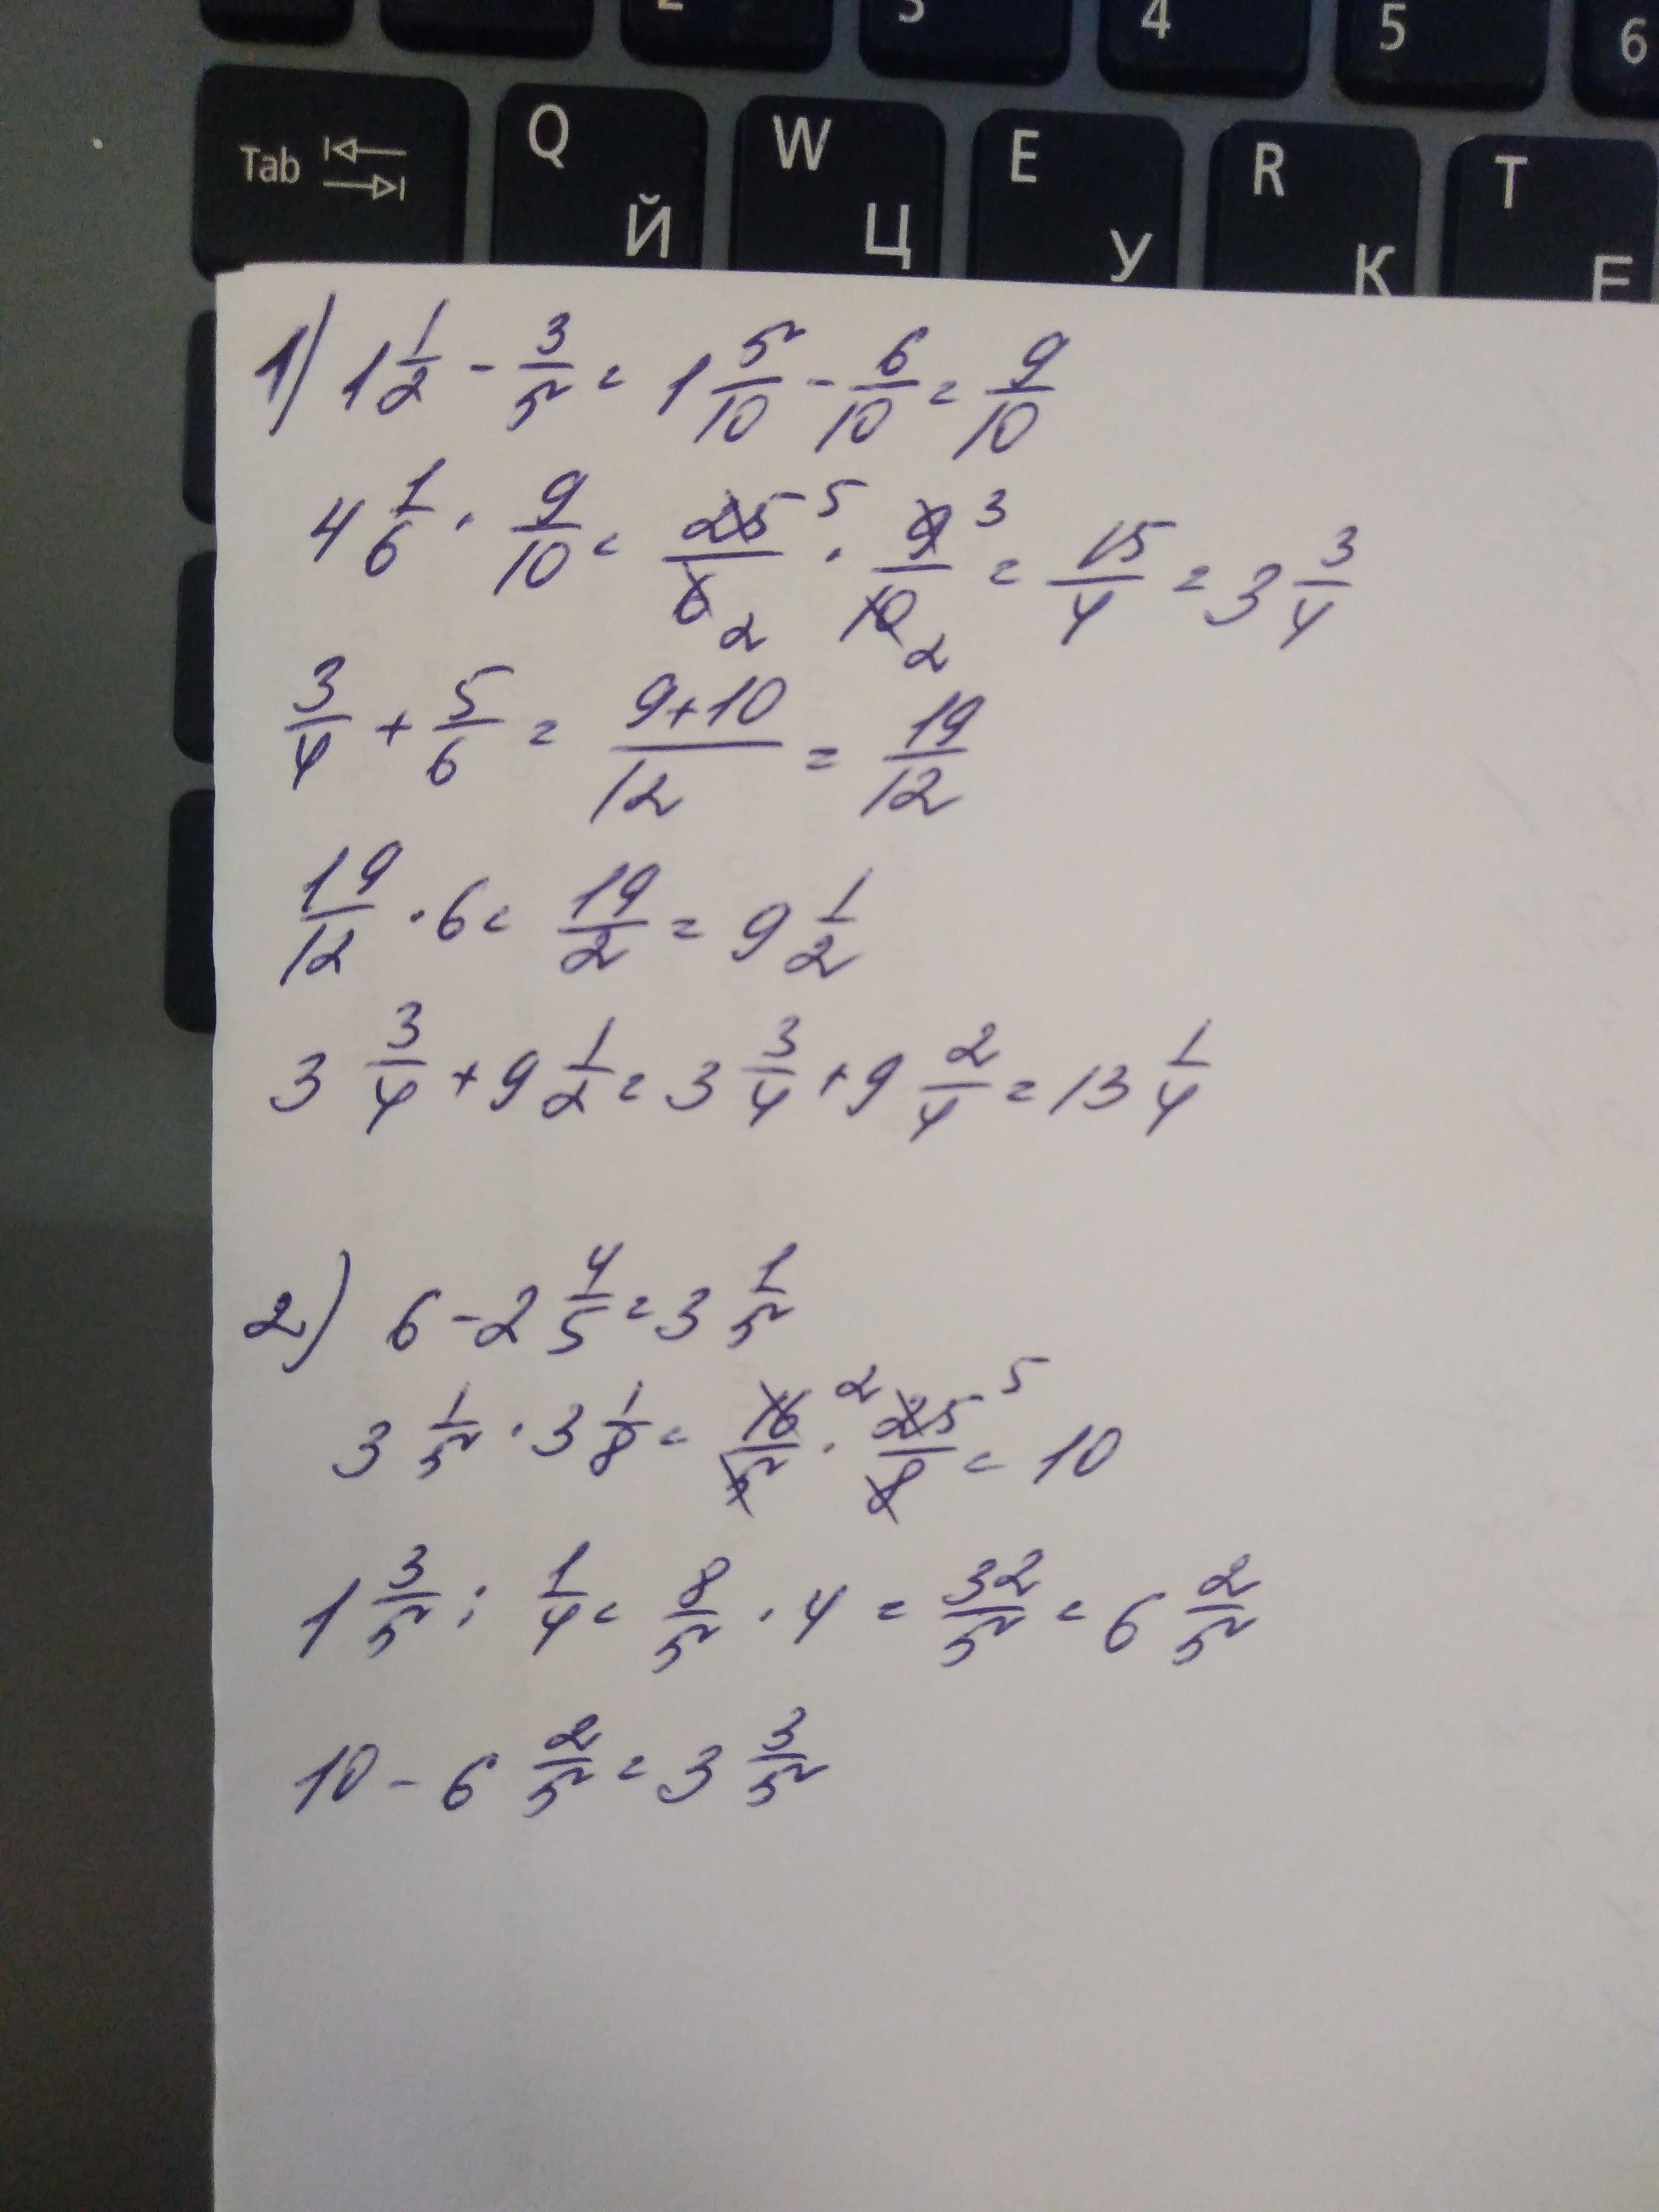 2 3 4 5 6
Tab Q Й W Ц E У R К T Е
1) 1 1/2 - 3/5 = 1 5/10 - 6/10 = 9/10
4 1/6 · 9/10 = 25/6 5/2 · 9/10 3/2 = 15/4 = 3 3/4
3/4 + 5/6 = 9+10/12 = 19/12
19/12 · 6 = 19/2 = 9 1/2
3 3/4 + 9 1/2 = 3 3/4 + 9 2/4 = 13 1/4
2) 6 - 2 4/5 = 3 1/5
3 1/5 · 3 1/8 = 16/5 2 · 25/8 5 = 10
1 3/5 : 1/4 = 8/5 · 4 = 32/5 = 6 2/5
10 - 6 2/5 = 3 3/5